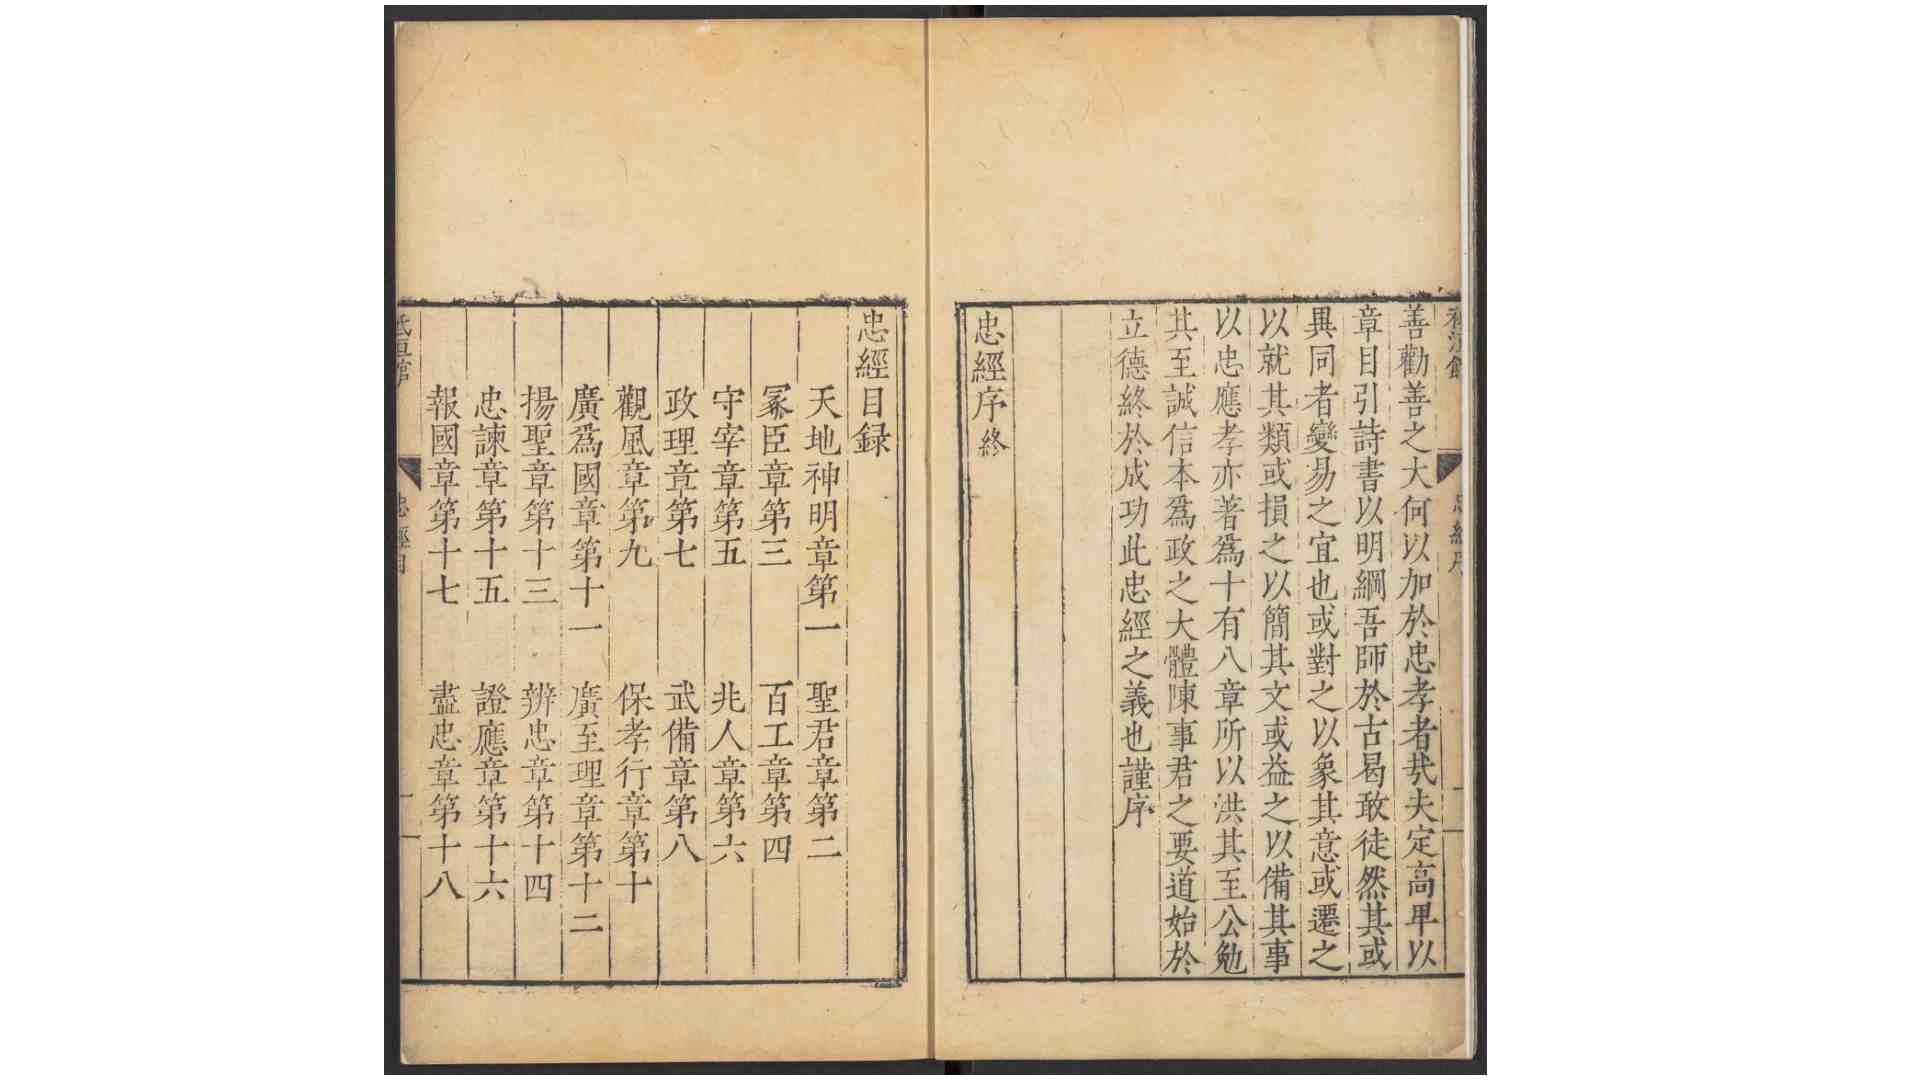 善勸善之大何以加於忠孝者㢤夫定高卑以
章目引詩書以明綱吾師於古曷敢徒然其或
異同者變易之宜也或對之以象其意或遷之
以就其類或損之以簡其文或益之以備其事
以忠應孝亦著爲十有八章所以洪其至公勉
其至誠信本爲政之大體陳事君之要道始於
立德終於成功此忠經之義也謹序
忠經序終
忠經目録
天地神明章第一 聖君章第二
冡臣章第三 百工章第四
守宰章第五 兆人章第六
政理章第七 武備章第八
觀風章第九 保孝行章第十
廣爲國章第十一 廣至理章第十二
揚聖章第十三 辨忠章第十四
忠諫章第十五 證應章第十六
報國章第十七 盡忠章第十八
忠經目